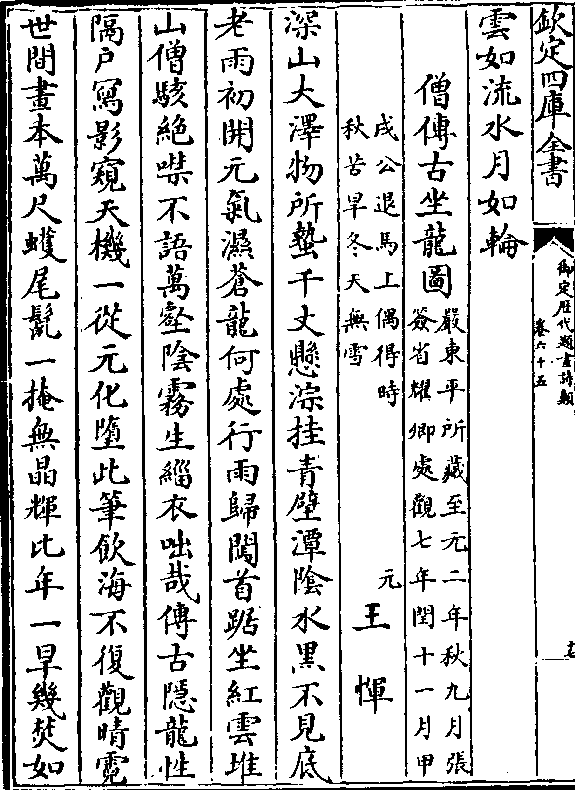 欽定四庫全書
御定歷代題畫詩類
卷六十五
雲如流水月如輪
僧傳古坐龍圖
嚴東平所藏至元二年秋九月張
簽省耀卿處觀七年閏十一月甲
戌公退馬上偶得時
秋苦旱冬天無雪
元
王惲
深山大澤物所蟄千丈懸淙挂青壁潭陰水黑不見底
老雨初開元氣濕蒼龍何處行雨歸闖首踞坐紅雲堆
山僧駭絶噤不語萬壑陰霧生緇衣咄哉傳古隱龍性
隔戸寫影窺天機一從元化墮此筆飲海不復觀晴霓
世間畫本萬尺蠖尾鬛一掩無晶輝比年一旱幾焚如